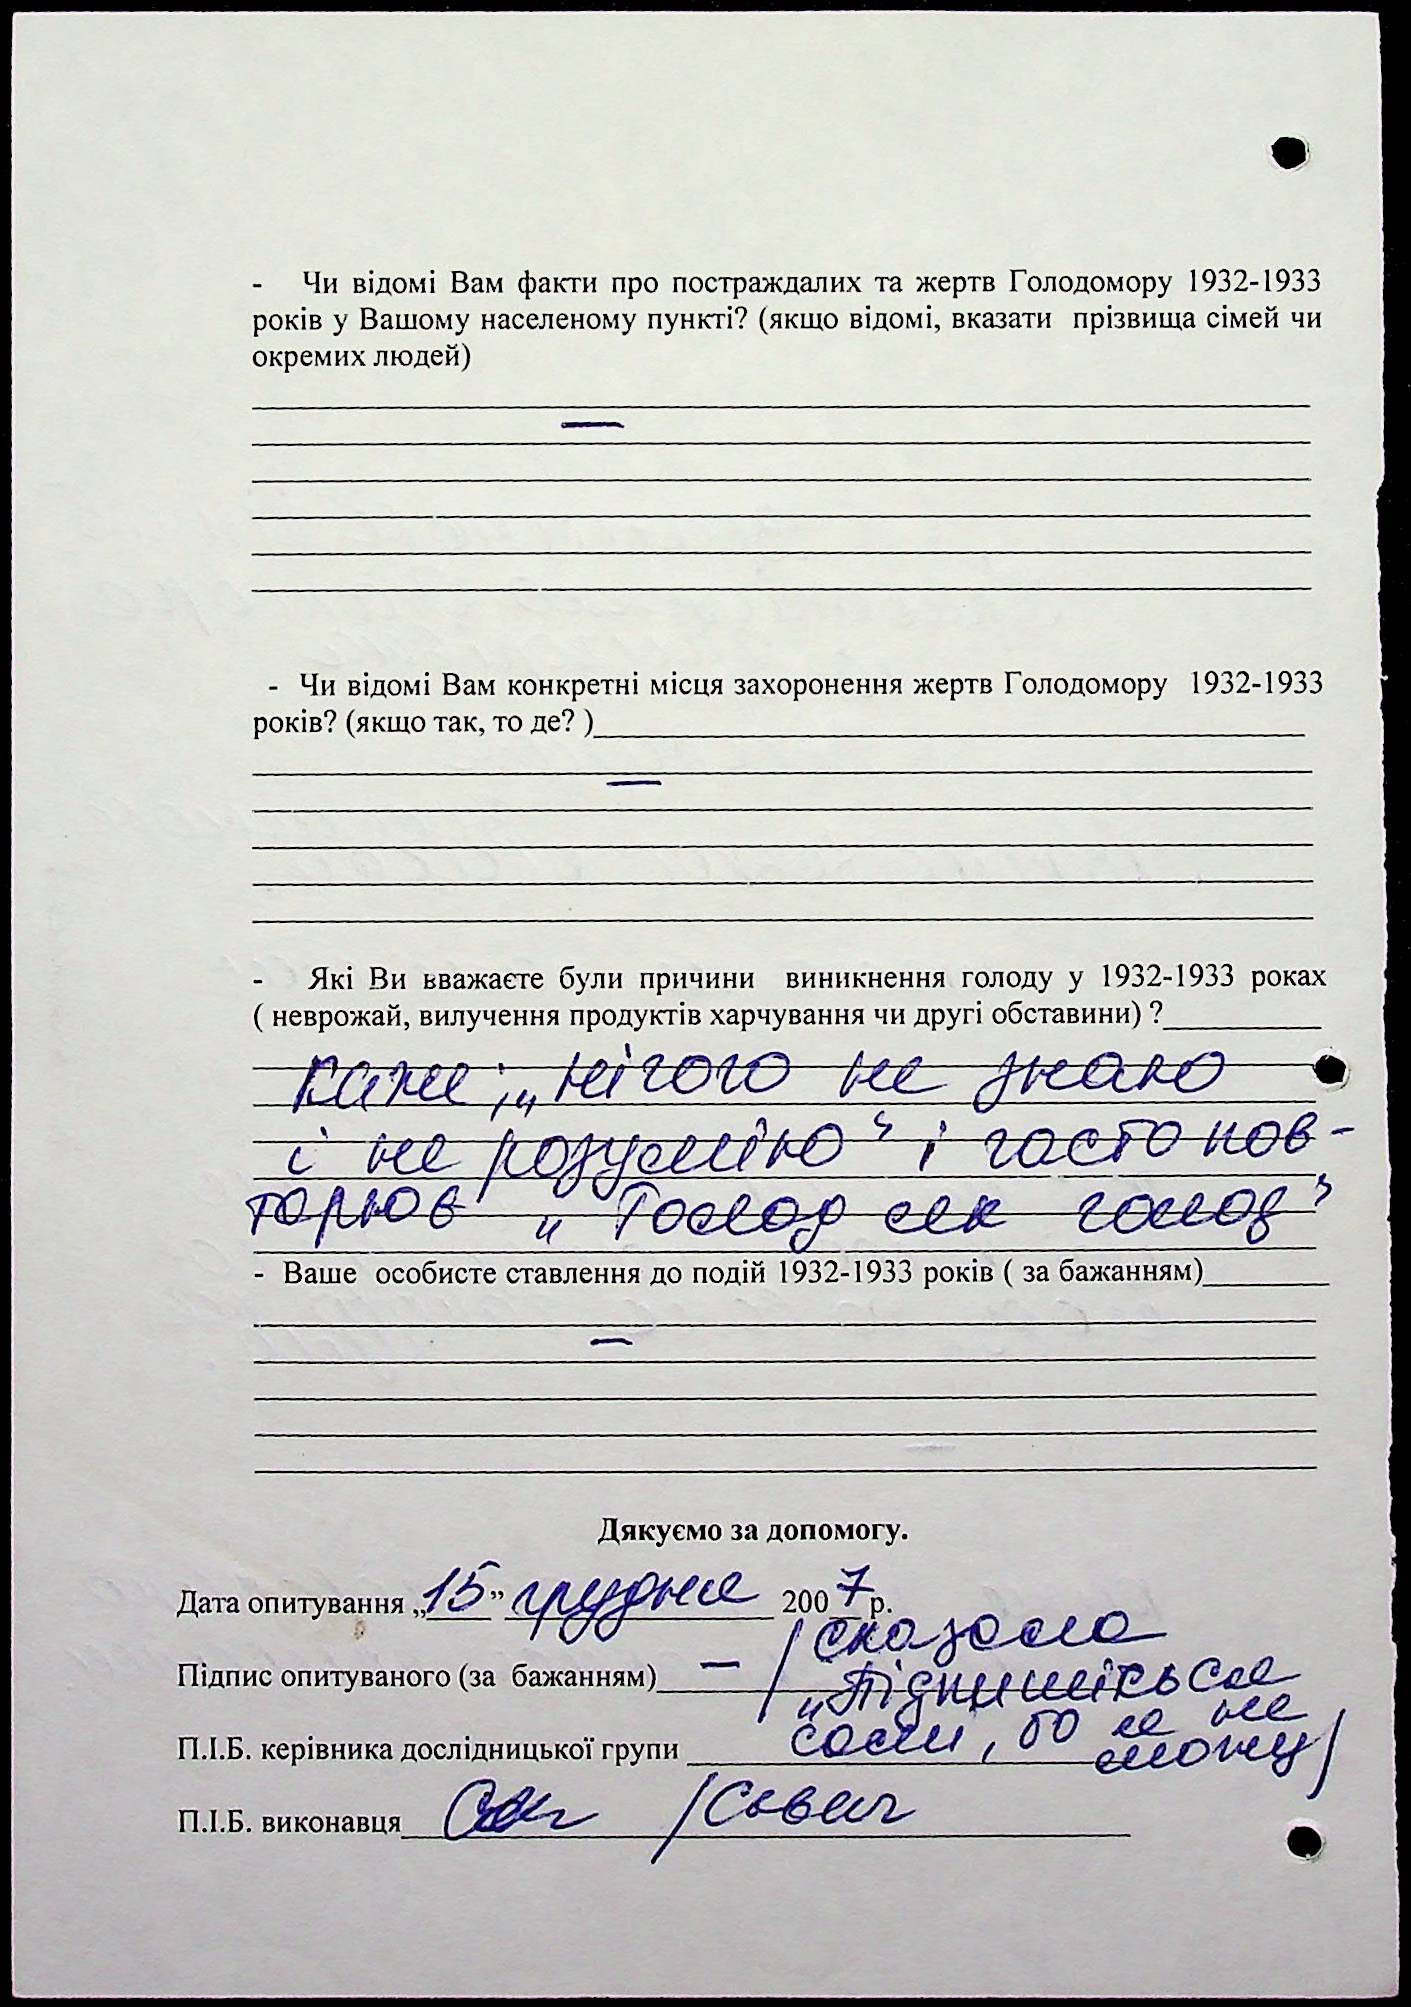 - Чи відомі Вам факти про постраждалих та жертв Голодомору 1932-1933
років у Вашому населеному пункті? (якщо відомі, вказати прізвища сімей чи
окремих людей)
—
- Чи відомі Вам конкретні місця захоронення жертв Голодомору 1932-1933
років? (якщо так, то де? )
—
- Які Ви вважаєте були причини виникнення голоду у 1932-1933 роках
( неврожай, вилучення продуктів харчування чи другі обставини) ?
каже; „нічого не знаю
і не розумію” і часто пов-
торює „Голод як голод”
- Ваше особисте ставлення до подій 1932-1933 років ( за бажанням)
—
Дякуємо за допомогу.
Дата опитування „15” грудня 2007 р.
Підпис опитуваного (за бажанням) — /сказала
„Підпишіться
П.І.Б. керівника дослідницької групи сами, бо я не
можу/
П.І.Б. виконавця /Савич